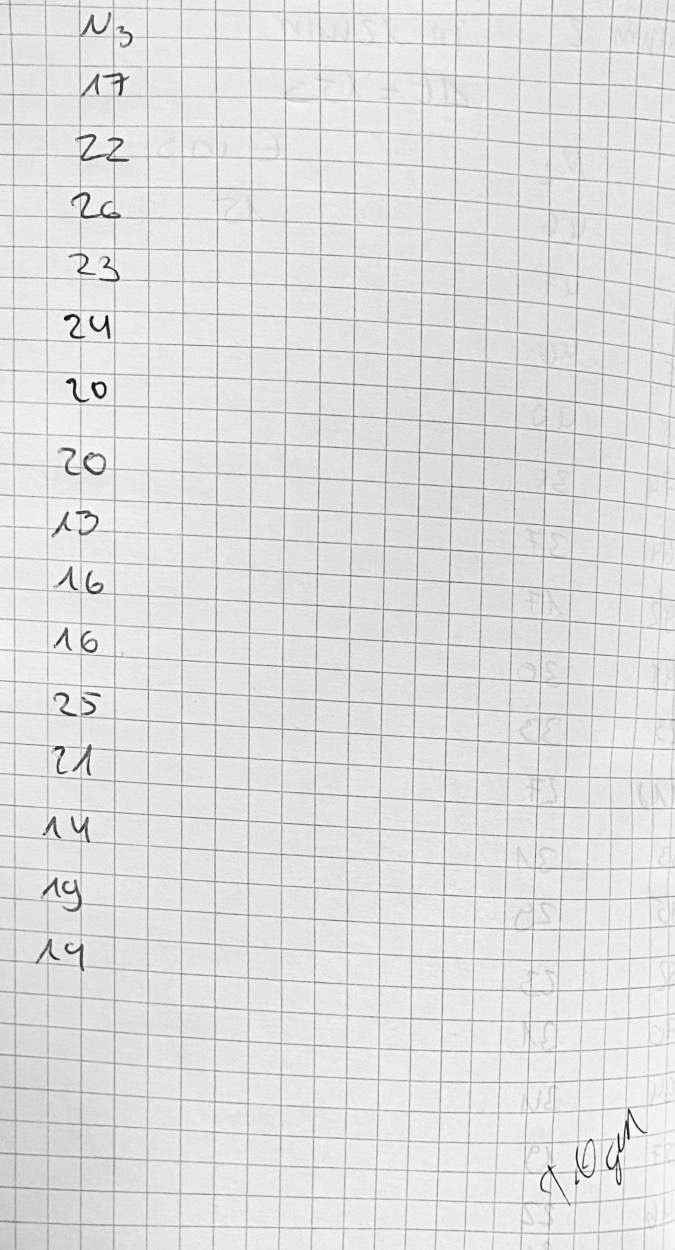 N3
17
22
26
23
24
20
20
13
16
16
25
21
14
19
19